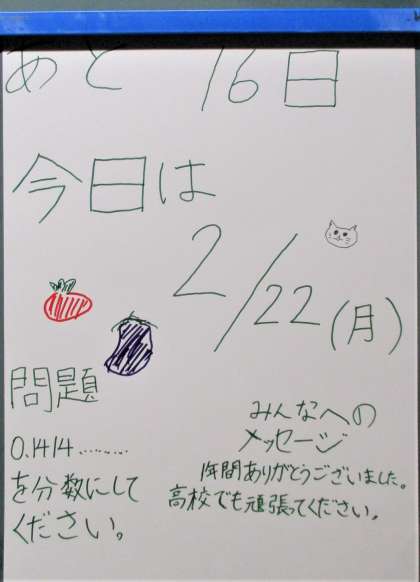 あと 16日
今日は
2/22(月)
問題
0.1414………
を分数にして
ください。
みんなへの
メッセージ
1年間ありがとうございました。
高校でも頑張ってください。